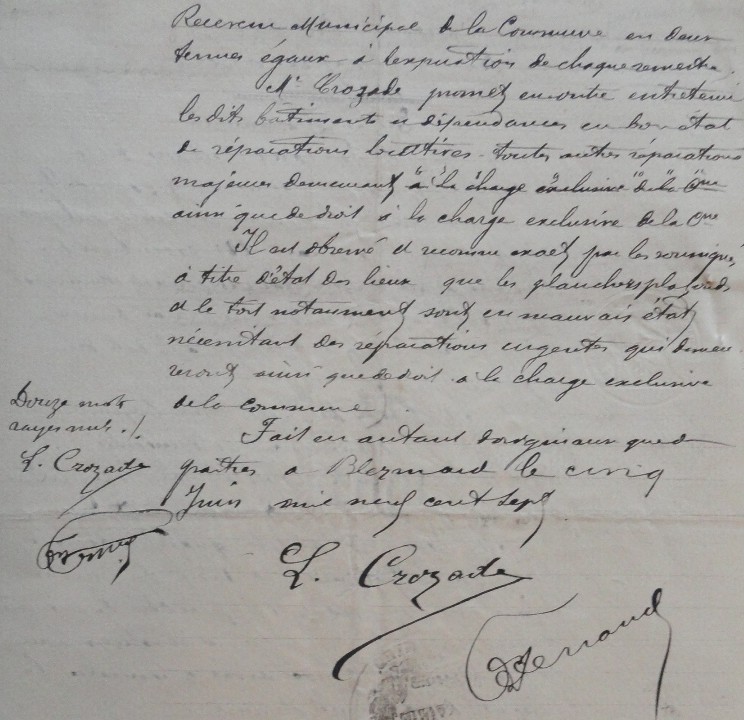 Receveur Municipal de la Commune en deux
termes égaux à l'expiration de chaque semestre.
Mr Crozade promet en outre entretenir
les dits bâtiments et dépendances en bon état
de réparations locatives. toutes autres réparations
majeures demeurant à la charge exclusive de la Cne
ainsi que de droit à la charge exclusive de la Cne
Il est observé et reconnu exact par les soussignés,
à titre d'état des lieux que les planchers plafonds
et le toit notamment sont en mauvais état
nécessitant des réparations urgentes qui demeu-
reront ainsi que de droit à la charge exclusive
de la commune.
Fait en autant d'originaux que de
parties à Bleymard le cinq
Juin mil neuf cent sept
Douze mots
rayés nuls ./.
L. Crozade
L. Crozade
Ferrand